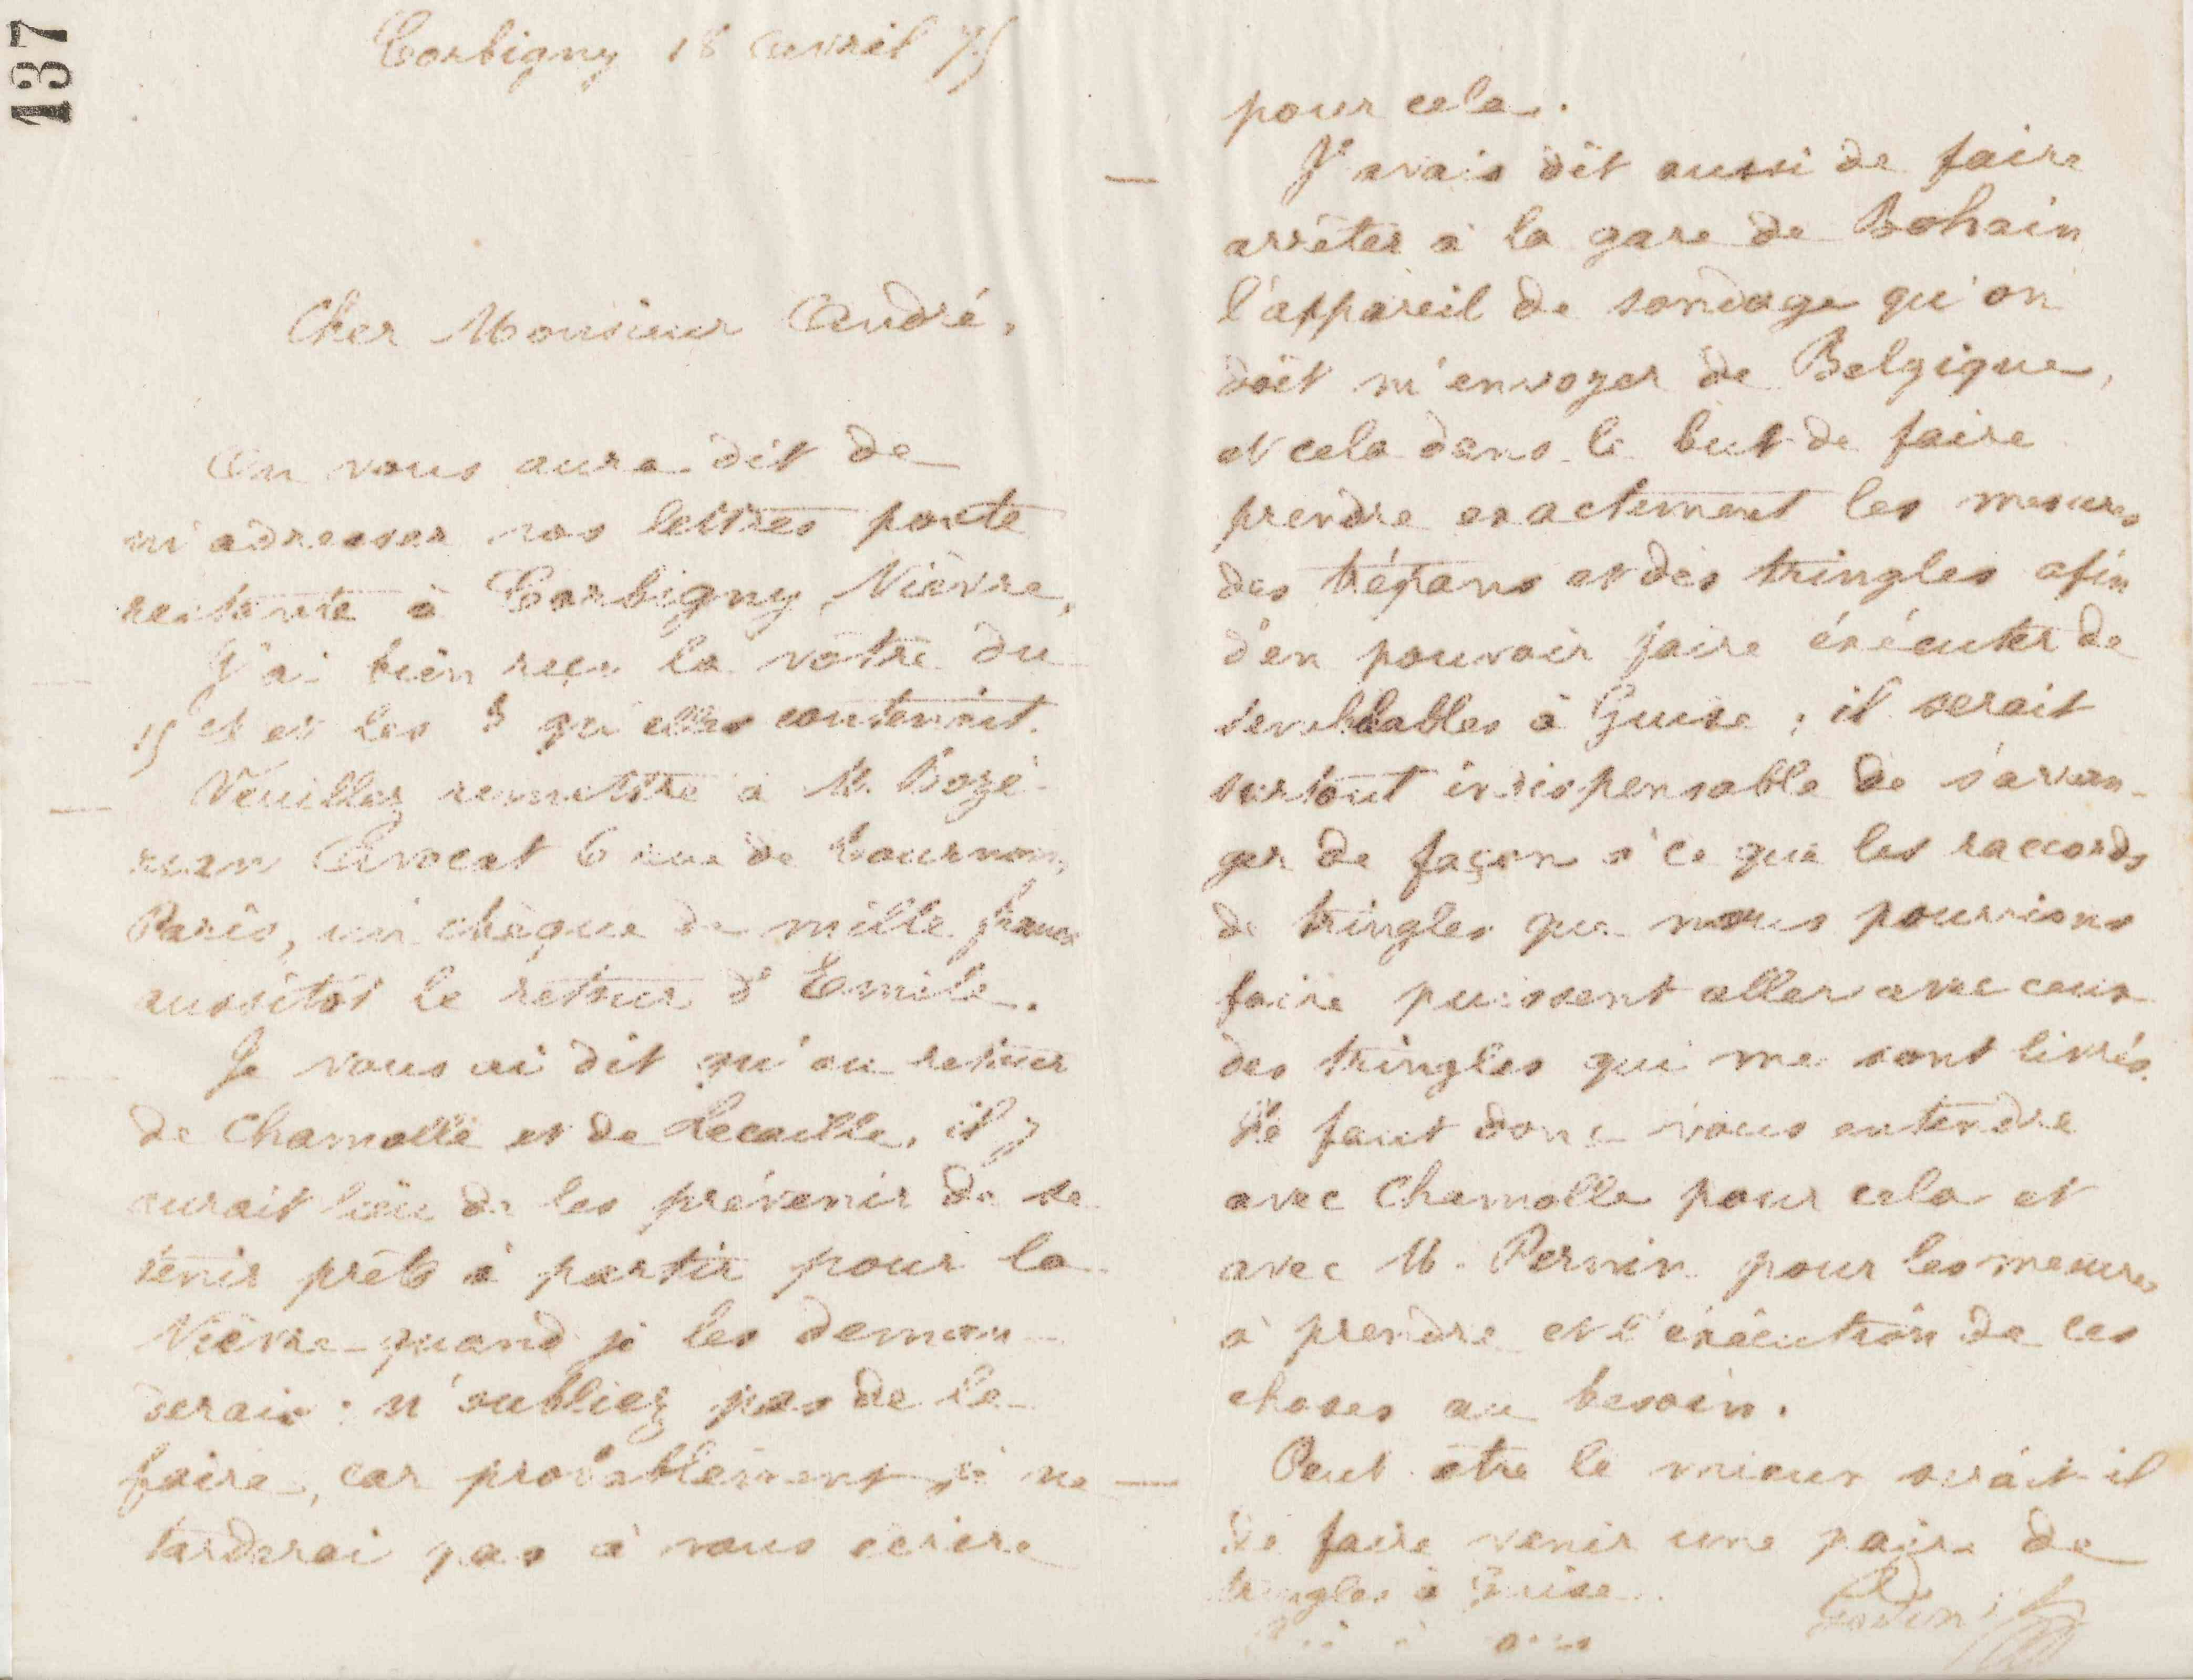 137
Corbigny 18 avril 75
Cher Monsieur André,
On vous aura dit de
m'adresser vos lettres poste
restante à Corbigny, Nièvre,
J'ai bien reçu la vôtre du
15 ct et les qu'elles contenait.
Veuillez remettre à M. Bozé-
rian Avocat 6 rue de Tournon,
Paris, un chèque de mille francs
aussitôt le retour d'Emile.
Je vous ai dit qu'au retour
de Chamolle et de Lecaille, il y
aurait lieu de les prévenir de se
tenir prêts à partir pour la
Nièvre quand je les deman-
derais : n'oubliez pas de le
faire, car probablement je ne
tarderai pas à vous écrire
pour cela.
J'avais dit aussi de faire
arrêter à la gare de Bohain
l'appareil de sondage qu'on
doit m'envoyer de Belgique,
et cela dans le but de faire
prendre exactement les mesures
des trépans et des tringles afin
d'en pouvoir faire exécuter de
semblables à Guise ; il serait
surtout indispensable de s'arran-
ger de façon à ce que les raccords
de tringles que nous pourrions
faire puissent aller avec ceux
des tringles qui me sont livrés.
Il faut donc vous entendre
avec Chamolle pour cela et
avec M. Pernin pour les mesures
à prendre et l'exécution de ces
choses au besoin.
Peut être le mieux serait-il
de faire venir une paire de
tringles à Guise.
Godin